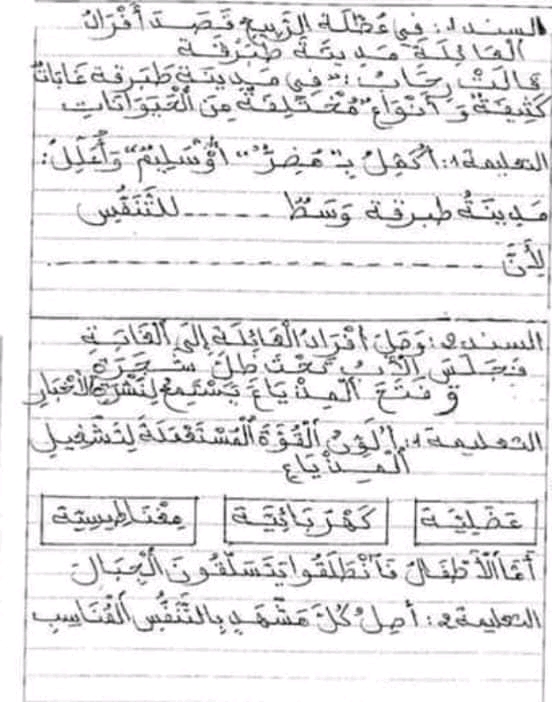 السند 1: في عُطْلَةِ الرَّبِيعِ قَصَدَ أَفْرَادُ
الْعَائِلَةِ مَدِينَةَ طَبَرْقَة
قَالَتْ رِحَابُ: "في مَدِينَةِ طَبَرقة غَابَاتٌ
كَثِيفَةٌ وَ أَنْوَاعٌ مُخْتَلِفَةٌ مِنَ الْحَيَوَانَاتِ
التعليمة 1: أُكْمِلُ بِـ "مُضِرٌّ" أَوْ "سَلِيمٌ" وَأُعَلِّلُ:
مَدِينَةُ طبرقة وَسَطٌ ------ للتَّنَفُّسِ
لِأَنَّ ------------------------
السند 2: وَصَلَ أَفْرَادُ الْعَائِلَةِ إِلَى الْغَابَةِ
فَجَلَسَ الْأَبُ تَحْتَ ظِلِّ شَجَرَةٍ
وَ فَتَحَ الْمِذْيَاعَ يَسْتَمِعُ لِنَشْرَةِ الْأَخْبَارِ
التعليمة 1: أُلَوِّنُ الْقُوَّةَ الْمُسْتَعْمَلَةَ لِتَشْغِيلِ
الْمِذْيَاعِ
عَضَلِيَّة كَهْرَبَائِيَّة مِغْنَاطِيسِيَّة
أَمَّا الْأَطْفَالُ فَانْطَلَقُوا يَتَسَلَّقُونَ الْجِبَالَ
التعليمة 2: أَصِلُ كُلَّ مَشْهَدٍ بِالتَّنَفُّسِ الْمُنَاسِبِ